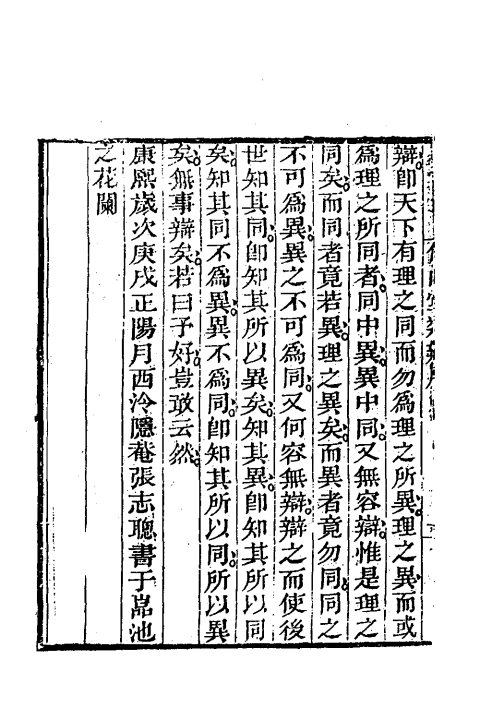 辯卽天下有理之同而勿爲理之所異理之異而或
爲理之所同者同中異異中同又無容辯惟是理之
同矣而同者竟若異理之異矣而異者竟勿同同之
不可爲異異之不可爲同又何容無辯辯之而使後
世知其同卽知其所以異矣知其異卽知其所以同
矣知其同不爲異異不爲同卽知其所以同所以異
矣無事辯矣若曰予好豈敢云然
康熙歲次庚戌正陽月西泠隱菴張志聰書于
池
之花闌